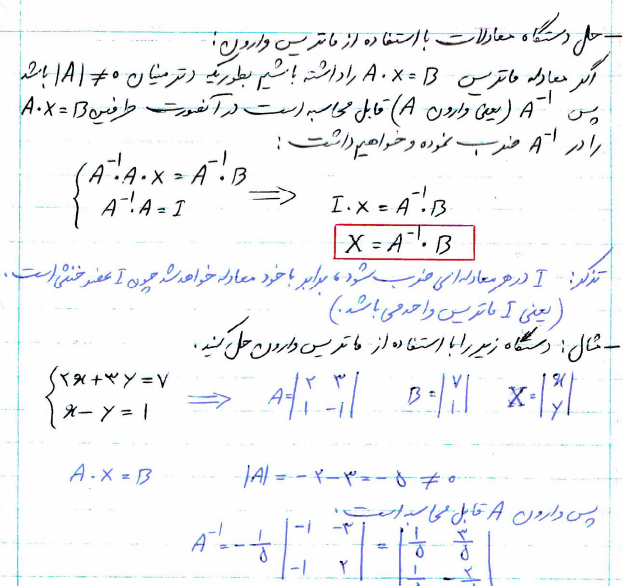 – حل دستگاه معادلات با استفاده از ماتریس وارون:
اگر معادله ماتریس A·X=B را داشته باشیم بطوریکه دترمینان |A|≠۰ باشد
پس A⁻¹ (یعنی وارون A) قابل محاسبه است در آنصورت طرفین A·X=B
را در A⁻¹ ضرب نموده و خواهیم داشت:
{ A⁻¹·A·X=A⁻¹·B ⟹ I·X=A⁻¹·B
A⁻¹·A=I
X=A⁻¹·B
تذکر: I در هر معادله‌ای ضرب شود، برابر با خود معادله خواهد شد چون I عضو خنثی است.
(یعنی I ماتریس واحد می باشد.)
– مثال: دستگاه زیر را با استفاده از ماتریس وارون حل کنید.
{ ۲x+۳y=۷ ⟹ A=|۲ ۳| B=|۷| X=|x|
x-y=۱ |۱ -۱| |۱| |y|
A·X=B |A|=-۲-۳=-۵≠۰
پس وارون A قابل محاسبه است:
A⁻¹=-۱/۵ |-۱ -۳| = |۱/۵ ۳/۵|
|-۱ ۲| |۱/۵ -۲/۵|